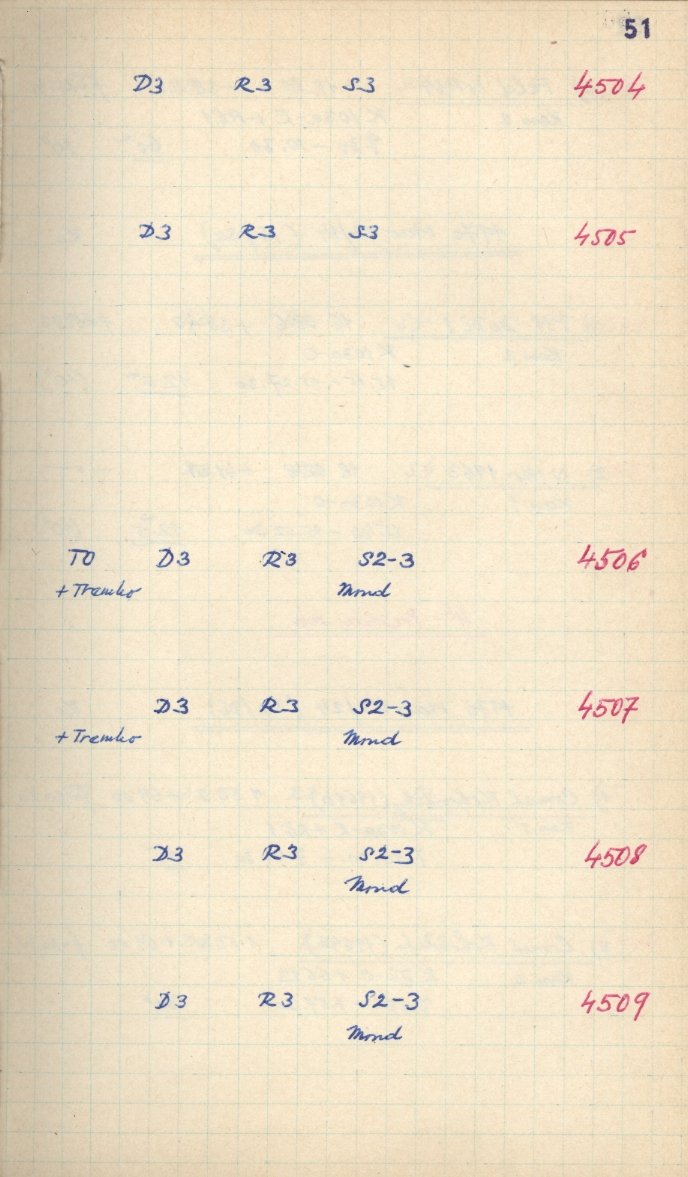 51
D3 R3 S3 4504
D3 R3 S3 4505
TO D3 R3 S2-3 4506
+ Tremko Mond
D3 R3 S2-3 4507
+ Tremko Mond
D3 R3 S2-3 4508
Mond
D3 R3 S2-3 4509
Mond